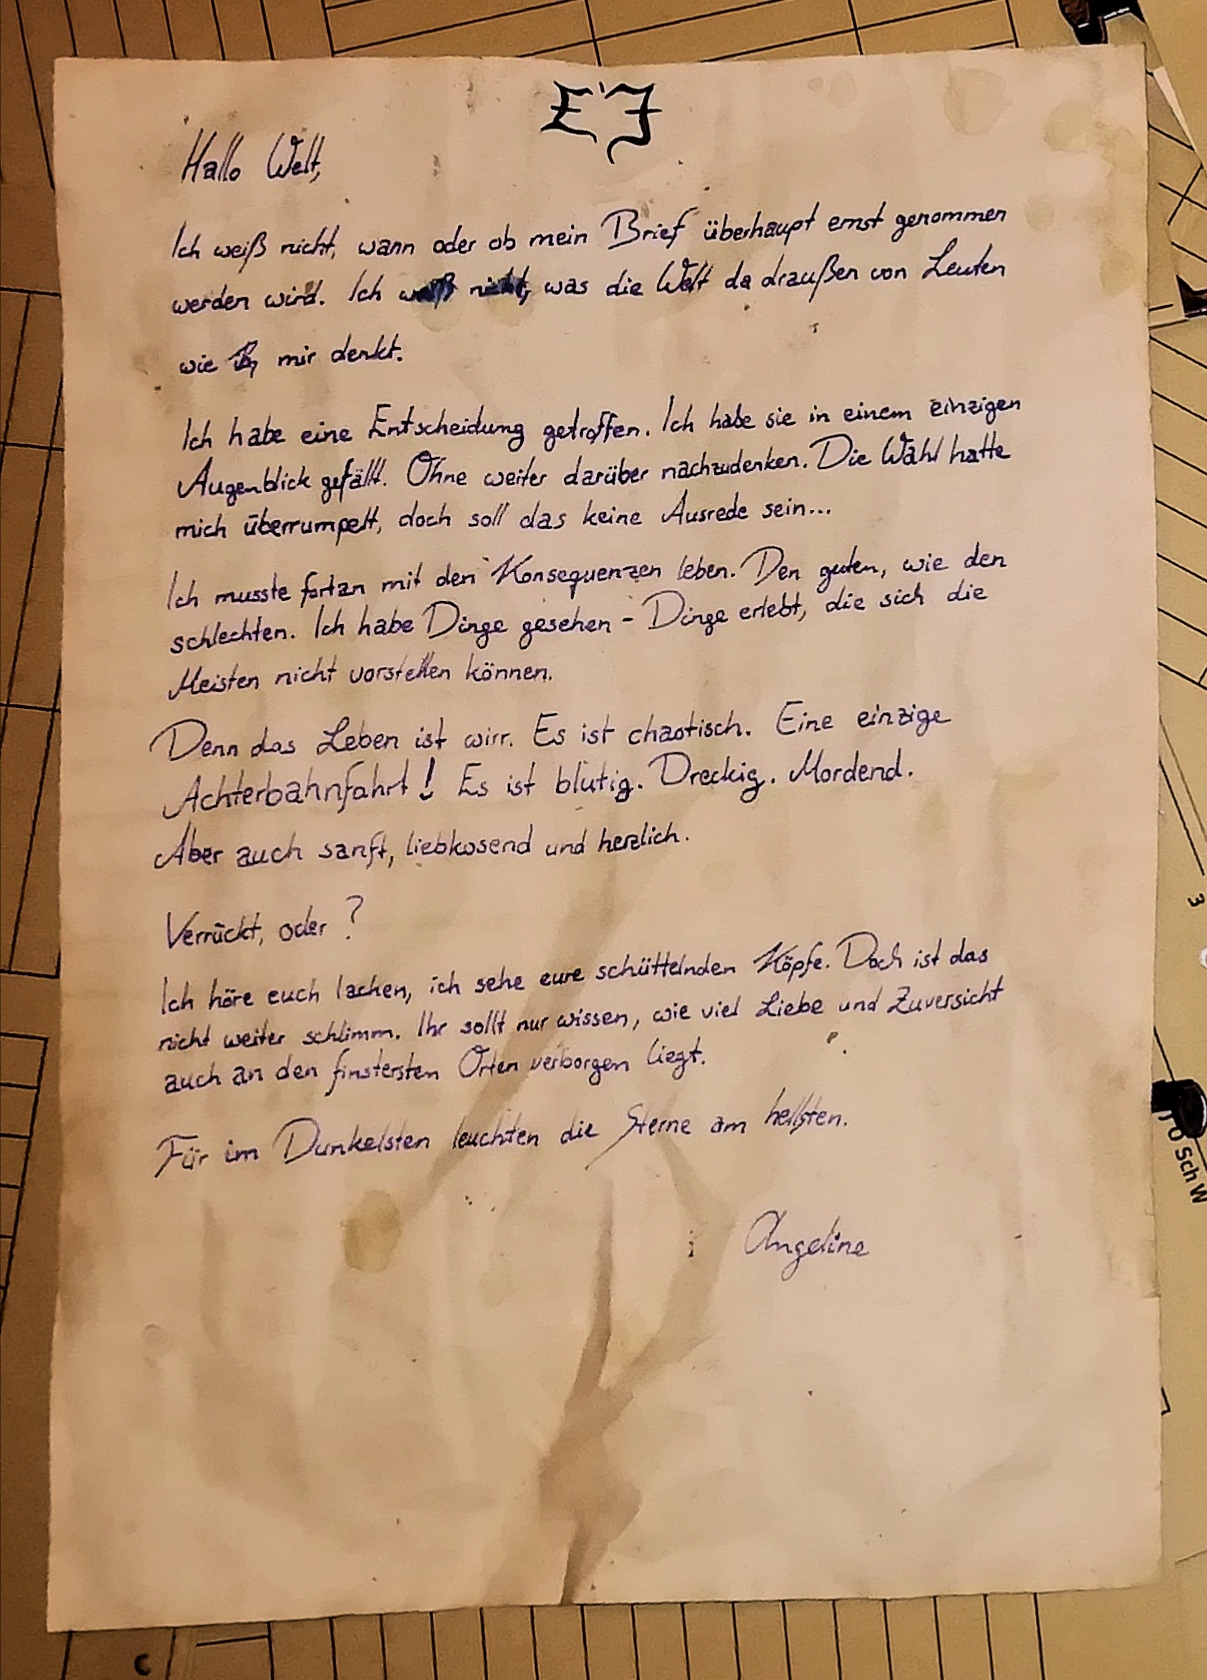 Hallo Welt,
Ich weiß nicht, wann oder ob mein Brief überhaupt ernst genommen
werden wird. Ich weiß nicht, was die Welt da draußen von Leuten
wie mir denkt.
Ich habe eine Entscheidung getroffen. Ich habe sie in einem einzigen
Augenblick gefällt. Ohne weiter darüber nachzudenken. Die Wahl hatte
mich überrumpelt, doch soll das keine Ausrede sein...
Ich musste fortan mit den Konsequenzen leben. Den guten, wie den
schlechten. Ich habe Dinge gesehen - Dinge erlebt, die sich die
Meisten nicht vorstellen können.
Denn das Leben ist wirr. Es ist chaotisch. Eine einzige
Achterbahnfahrt! Es ist blutig. Dreckig. Mordend.
Aber auch sanft, liebkosend und herzlich.
Verrückt, oder?
Ich höre euch lachen, ich sehe eure schüttelnden Köpfe. Doch ist das
nicht weiter schlimm. Ihr sollt nur wissen, wie viel Liebe und Zuversicht
auch an den finstersten Orten verborgen liegt.
Für im Dunkelsten leuchten die Sterne am hellsten.
Angeline
3
Sch W